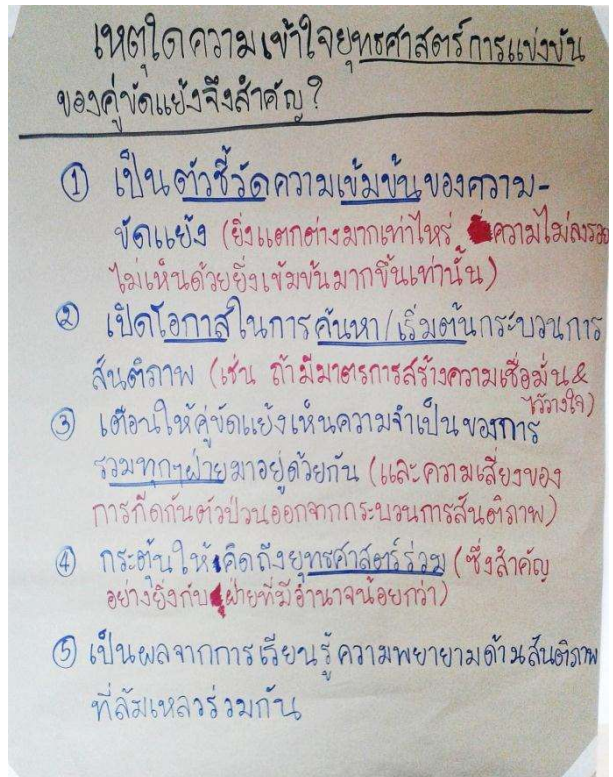 เหตุใดความเข้าใจยุทธศาสตร์การแข่งขัน
ของคู่ขัดแย้งจึงสำคัญ?
① เป็นตัวชี้วัดความเข้มข้นของความ-
ขัดแย้ง (ยิ่งแตกต่างมากเท่าไหร่ ความไม่ลงรอย
ไม่เห็นด้วยยิ่งเข้มข้นมากขึ้นเท่านั้น)
② เปิดโอกาสในการค้นหา/เริ่มต้นกระบวนการ
สันติภาพ (เช่น ถ้ามีมาตรการสร้างความเชื่อมั่น&
ไว้วางใจ)
③ เตือนให้คู่ขัดแย้งเห็นความจำเป็นของการ
รวมทุกๆฝ่ายมาอยู่ด้วยกัน (และความเสี่ยงของ
การกีดกันตัวป่วนออกจากกระบวนการสันติภาพ)
④ กระตุ้นให้คิดถึงยุทธศาสตร์ร่วม (ซึ่งสำคัญ
อย่างยิ่งกับฝ่ายที่มีอำนาจน้อยกว่า)
⑤ เป็นผลจากการเรียนรู้ความพยายามด้านสันติภาพ
ที่ล้มเหลวร่วมกัน